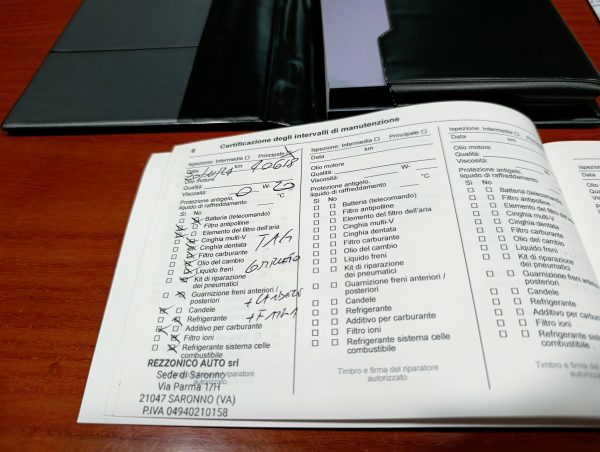 6 Certificazione degli intervalli di manutenzione
Ispezione: Intermedia Principale
Data km
40618
Olio motore
Qualità:
Viscosità: 0 W- 20
Protezione antigelo,
liquido di raffreddamento °C
Sì No
Batteria (telecomando)
Filtro antipolline
Elemento del filtro dell'aria
Cinghia multi-V
Cinghia dentata
Filtro carburante
Olio del cambio
Liquido freni
Kit di riparazione
dei pneumatici
Guarnizione freni anteriori /
posteriori
Candele
Refrigerante
Additivo per carburante
Filtro ioni
Refrigerante sistema celle
combustibile
TAG
REZZONICO AUTO srl
Sede di Saronno
Via Parma 17H
21047 SARONNO (VA)
P.IVA 04940210158
autorizzato
Ispezione: Intermedia Principale
Data km
Olio motore
Qualità:
Viscosità: W-
Protezione antigelo,
liquido di raffreddamento °C
Sì No
Batteria (telecomando)
Filtro antipolline
Elemento del filtro dell'aria
Cinghia multi-V
Cinghia dentata
Filtro carburante
Olio del cambio
Liquido freni
Kit di riparazione
dei pneumatici
Guarnizione freni anteriori /
posteriori
Candele
Refrigerante
Additivo per carburante
Filtro ioni
Refrigerante sistema celle
combustibile
Timbro e firma del riparatore
autorizzato
Ispezione: Intermedia Principale
Data km
Olio motore
Qualità:
Viscosità: W-
Protezione antigelo,
liquido di raffreddamento °C
Sì No
Batteria (telecomando)
Filtro antipolline
Elemento del filtro dell'aria
Cinghia multi-V
Cinghia dentata
Filtro carburante
Olio del cambio
Liquido freni
Kit di riparazione
dei pneumatici
Guarnizione freni anteriori /
posteriori
Candele
Refrigerante
Additivo per carburante
Filtro ioni
Refrigerante sistema celle
combustibile
Timbro e firma del
autorizzato